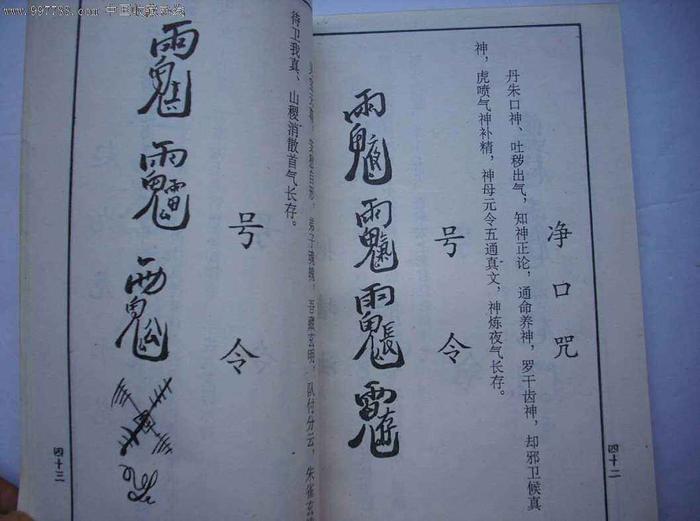 www.997788.com 中国收藏热线
净口咒
丹朱口神、吐秽出气，知神正论，通命养神，罗干齿神，却邪卫候真
神，虎喷气神补精，神母元令五通真文，神炼夜气长存。
号令
四十二
弟子魂魄，吾藏玄明，队付分云，朱雀玄
待卫我真、山稷消散首气长存。
号令
四十三